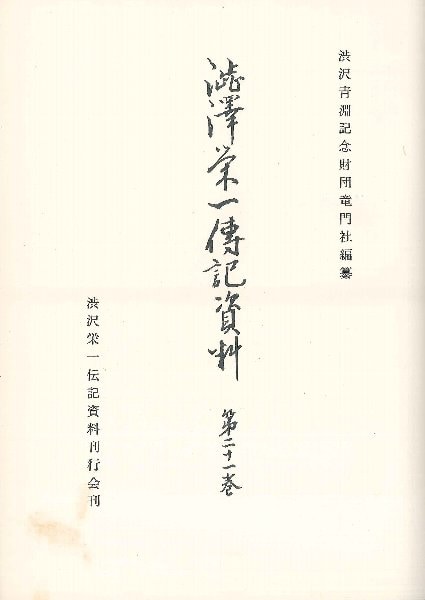 渋沢青淵記念財団竜門社編纂
澁澤栄一傳記資料 第二十一巻
渋沢栄一伝記資料刊行会刊